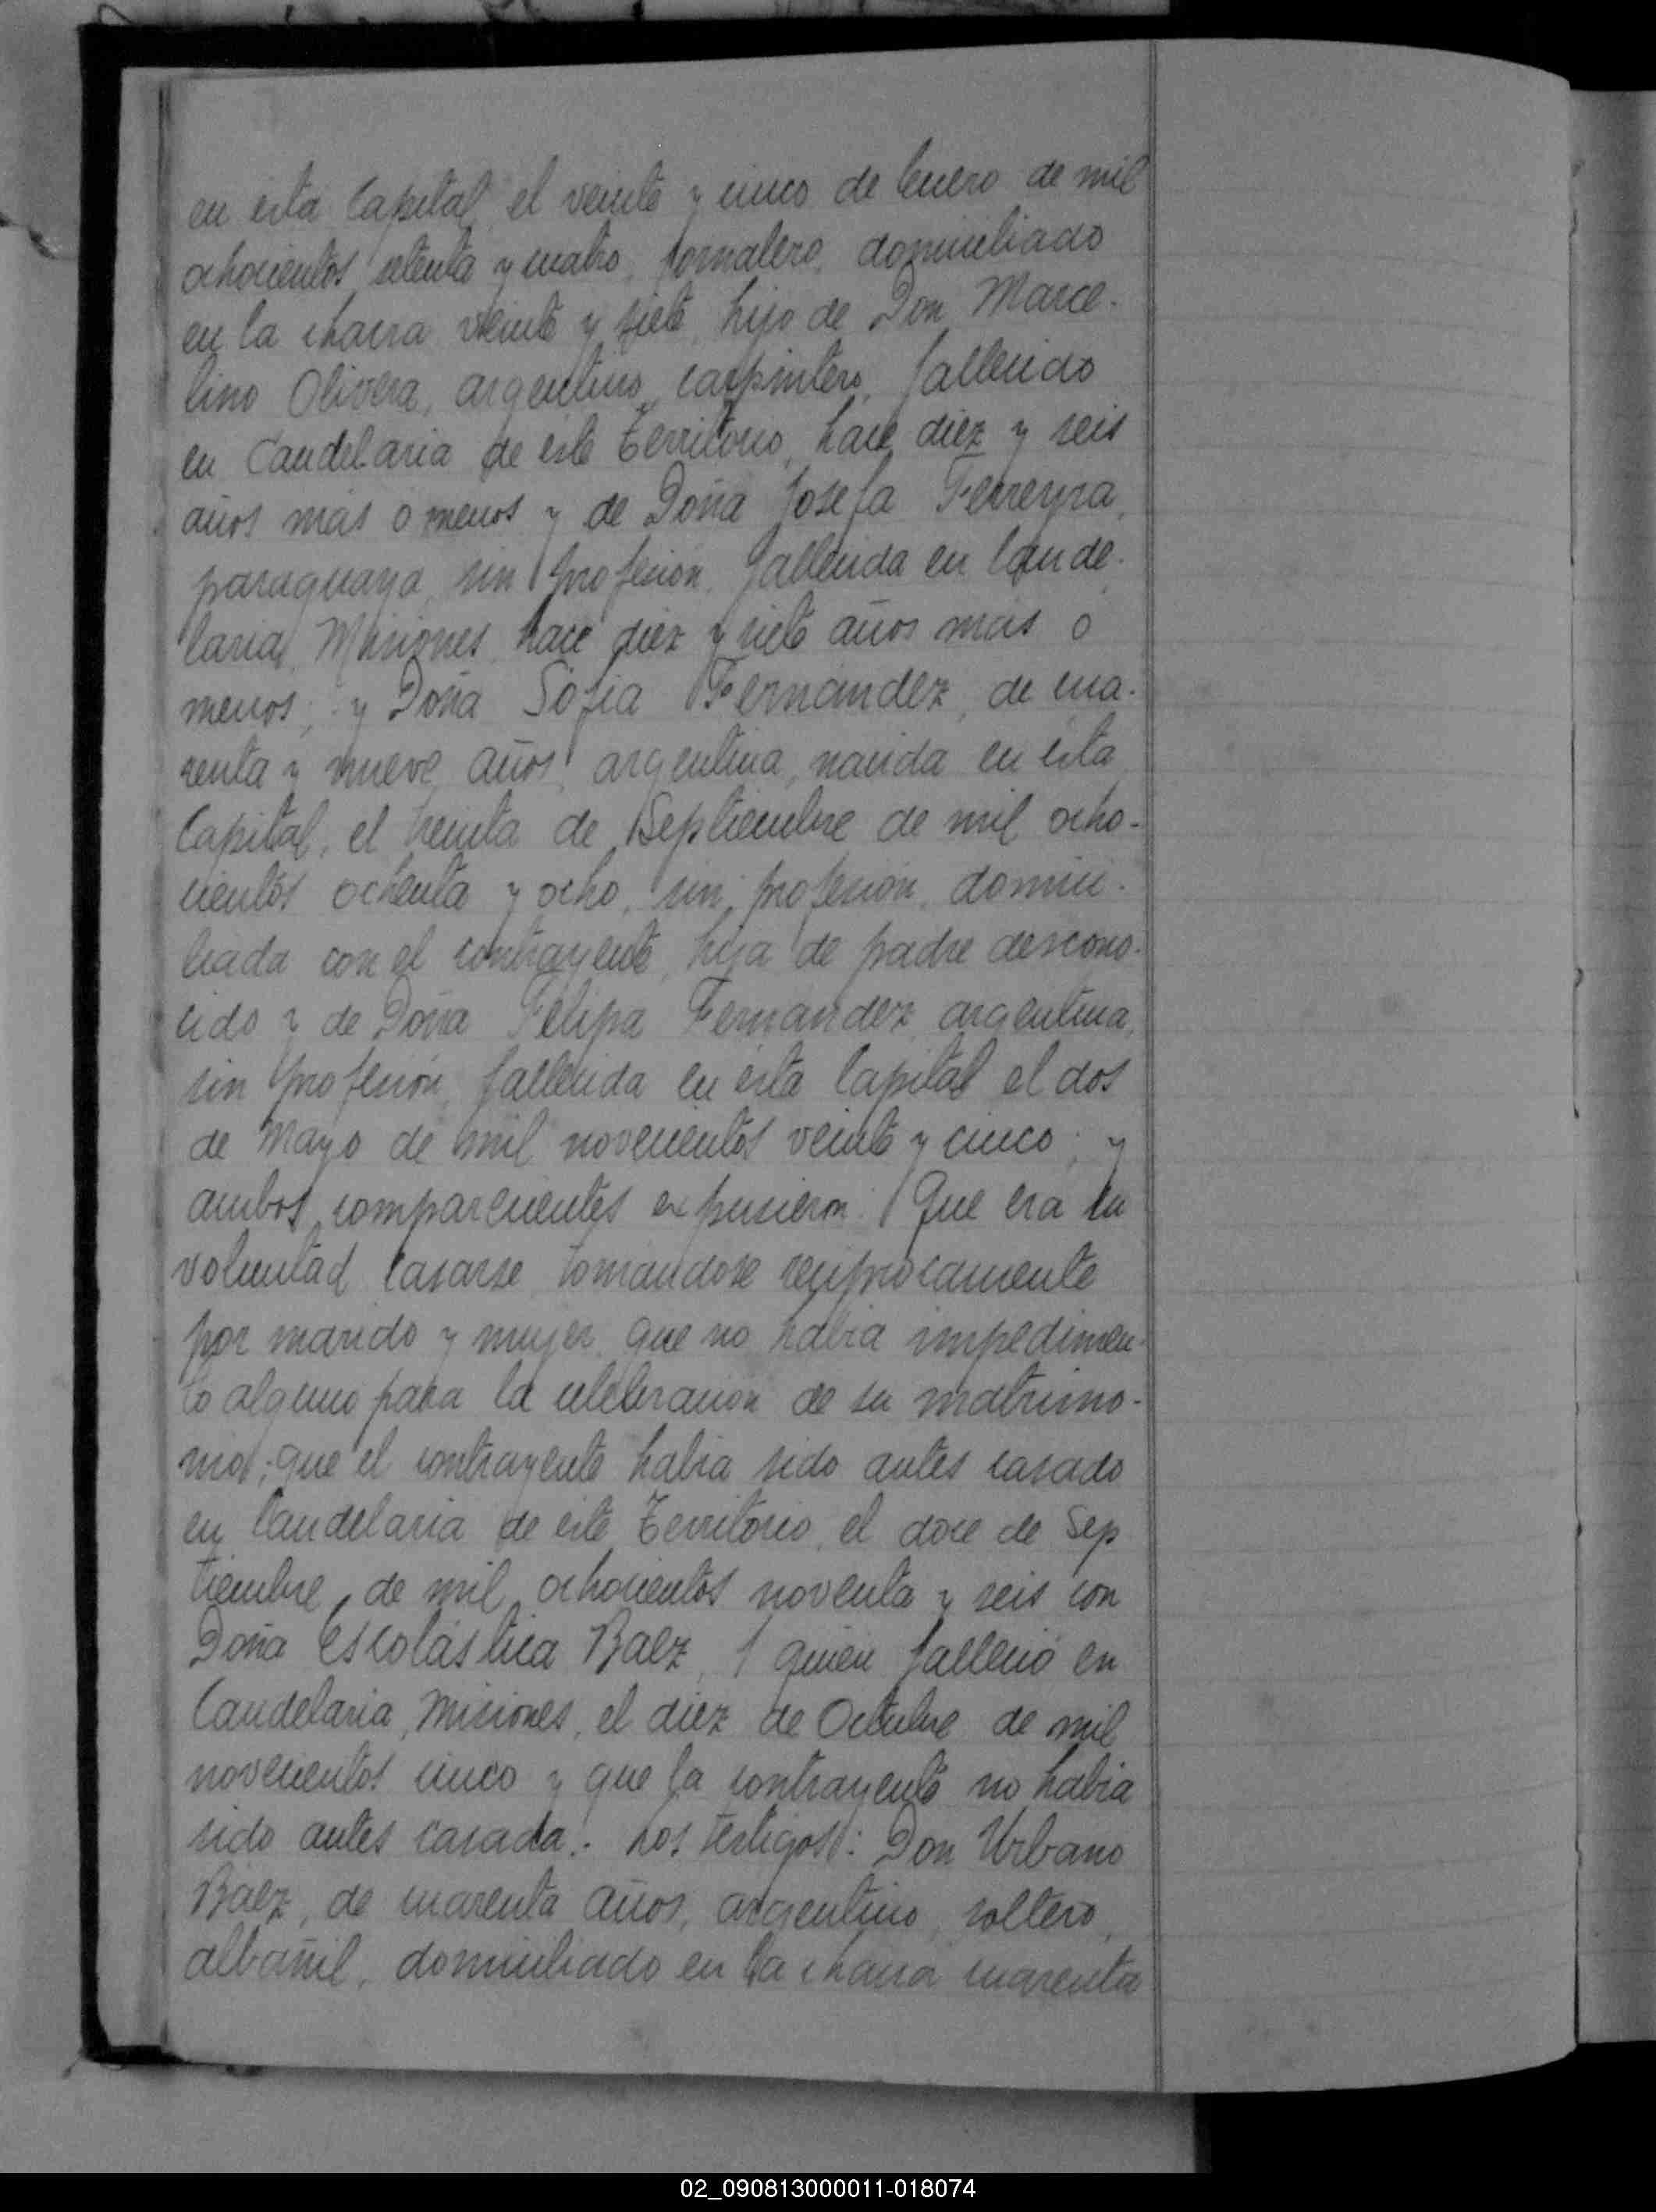 en esta Capital, el veinte y cinco de Enero de mil
ochocientos setenta y cuatro, jornalero, domiciliado
en la chacra veinte y siete, hijo de Don Marce-
lino Olivera, argentino, carpintero, fallecido
en Candelaria de este Territorio, hace diez y seis
años más o menos y de Doña Josefa Ferreyra,
paraguaya, sin profesión, fallecida en Cande-
laria, Misiones, hace diez y siete años más o
menos; y Doña Sofia Fernández, de cua-
renta y nueve años, argentina, nacida en esta
Capital, el treinta de Septiembre de mil ocho-
cientos ochenta y ocho, sin profesión, domici-
liada con el contrayente, hija de padre descono-
cido y de Doña Felipa Fernandez, argentina,
sin profesión, fallecida en esta Capital el dos
de Mayo de mil novecientos veinte y cinco; y
ambos comparecientes expusieron: Que era su
voluntad casarse tomandose reciprocamente
por marido y mujer, que no habia impedimen-
to alguno para la celebracion de su matrimo-
nio; que el contrayente habia sido antes casado
en Candelaria de este Territorio, el doce de Sep
tiembre de mil ochocientos noventa y seis con
Doña Escolástica Baez, quien falleció en
Candelaria, Misiones, el diez de Octubre de mil
novecientos cinco y que la contrayente no habia
sido antes casada. Los testigos: Don Urbano
Baez, de cuarenta años, argentino, soltero,
albañil, domiciliado en la chacra cuarenta
02_090813000011-018074